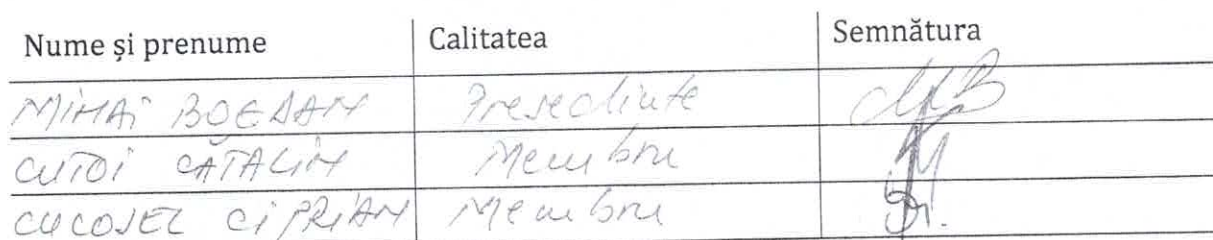 Nume și prenume Calitatea Semnătura
MIHAI BOGDAN Președinte
CUTOI CĂTALIN Membru
CUCOȘEL CIPRIAN Membru